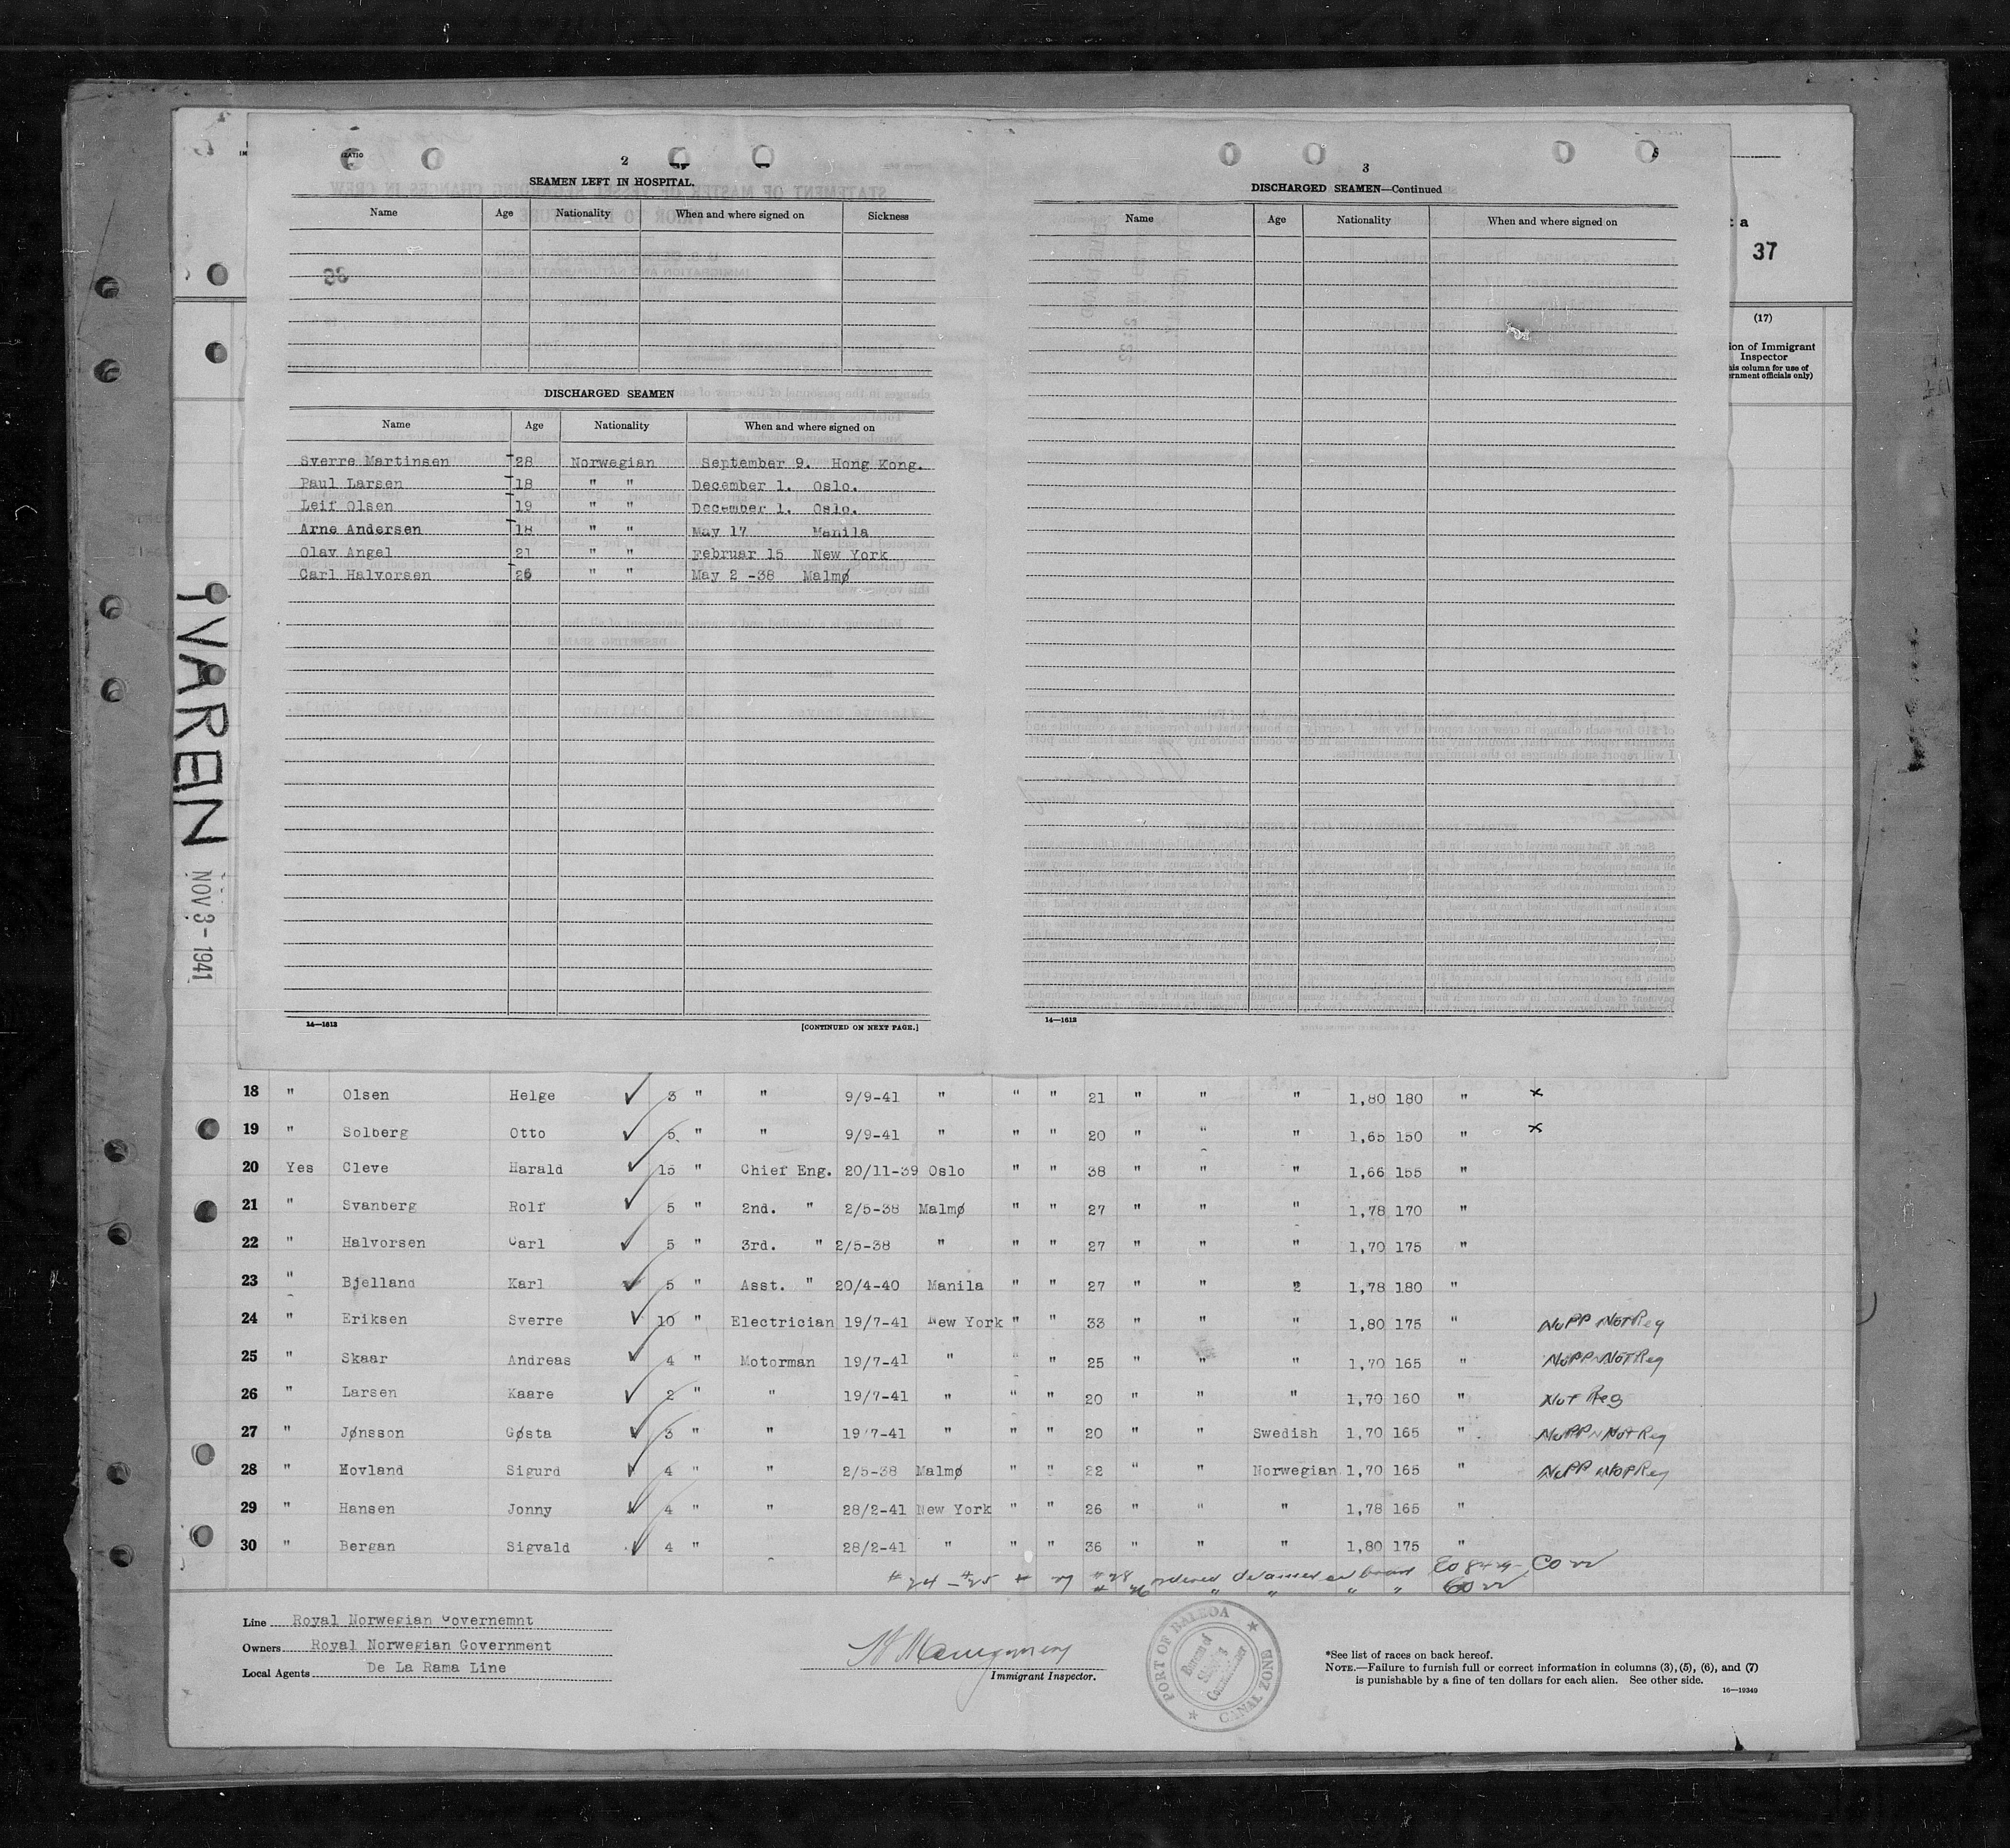 2
SEAMEN LEFT IN HOSPITAL.
Name Age Nationality When and where signed on Sickness
DISCHARGED SEAMEN
Name Age Nationality When and where signed on
Sverre Martinsen 28 Norwegian September 9. Hong Kong.
Paul Larsen 18 " " December 1. Oslo.
Leif Olsen 19 " " December 1. Oslo.
Arne Andersen 18 " " May 17 Manila
Olav Angel 21 " " Februar 15 New York
Carl Halvorsen 26 " " May 2 -38 Malmø
14—1612 [CONTINUED ON NEXT PAGE.]
3
DISCHARGED SEAMEN—Continued
Name Age Nationality When and where signed on
14—1612
37
(17)
ion of Immigrant
Inspector
his column for use of
ernment officials only)
IVAREN NOV 3 - 1941
18 " Olsen Helge ✓ 3 " " 9/9-41 " " " 21 " " " 1,80 180 " x
19 " Solberg Otto ✓ 5 " " 9/9-41 " " " 20 " " " 1,65 150 " x
20 Yes Cleve Harald ✓ 15 " Chief Eng. 20/11-39 Oslo " " 38 " " " 1,66 155 "
21 " Svanberg Rolf ✓ 5 " 2nd. " 2/5-38 Malmø " " 27 " " " 1,78 170 "
22 " Halvorsen Carl ✓ 5 " 3rd. " 2/5-38 " " " 27 " " " 1,70 175 "
23 " Bjelland Karl ✓ 5 " Asst. " 20/4-40 Manila " " 27 " " " 1,78 180 "
24 " Eriksen Sverre ✓ 10 " Electrician 19/7-41 New York " " 33 " " " 1,80 175 " NoPP Not Reg
25 " Skaar Andreas ✓ 4 " Motorman 19/7-41 " " " 25 " " " 1,70 165 " NoPP Not Reg
26 " Larsen Kaare ✓ 2 " " 19/7-41 " " " 20 " " " 1,70 160 " Not Reg
27 " Jønsson Gøsta ✓ 3 " " 19/7-41 " " " 20 " " Swedish 1,70 165 " NoPP Not Reg
28 " Hovland Sigurd ✓ 4 " " 2/5-38 Malmø " " 22 " " Norwegian 1,70 165 " NoPP Not Reg
29 " Hansen Jonny ✓ 4 " " 28/2-41 New York " " 26 " " " 1,78 165 "
30 " Bergan Sigvald ✓ 4 " 28/2-41 " " " 36 " " " 1,80 175 "
#24 - #25 # 27 #28 ordered detained on board
# 26 " " " "
Line Royal Norwegian Governemnt
Owners Royal Norwegian Government
Local Agents De La Rama Line
Immigrant Inspector.
PORT OF BALBOA
CANAL ZONE
*See list of races on back hereof.
NOTE.—Failure to furnish full or correct information in columns (3), (5), (6), and (7)
is punishable by a fine of ten dollars for each alien. See other side.
16—19349